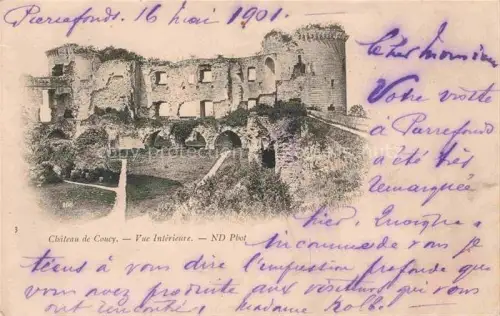 Pierrefonds. 16 mai 1901.
Cher Monsieur
Votre visite
à Pierrefonds
a été très
remarquée
hier. Quoique
incommodée
tiens à vous dire l'impression profonde que
vous avez produite aux visiteurs qui vous
ont rencontré. Madame
Château de Coucy. — Vue Intérieure. — ND Phot